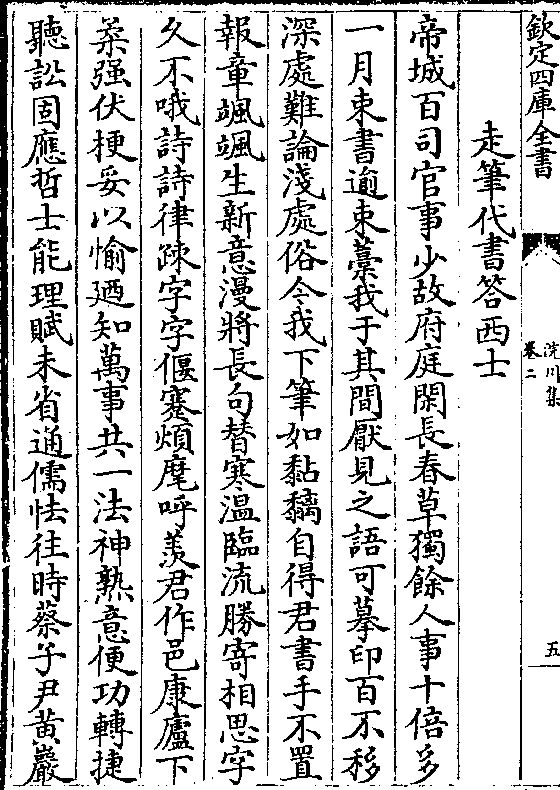 欽定四庫全書
洺川集
卷二
五
走筆代書答西士
帝城百司官事少故府庭閑長春草獨餘人事十倍多
一月束書逾束藁我于其間厭見之語可摹印百不移
深處難論淺處俗令我下筆如黏黐自得君書手不置
報章颯颯生新意漫將長句替寒溫臨流勝寄相思字
久不哦詩詩律疎字字偃蹇煩麾呼羨君作邑康廬下
柔强伏梗妥以愉廼知萬事共一法神熟意便功轉捷
聽訟固應哲士能理賦未省通儒怯往時蔡子尹黄巖